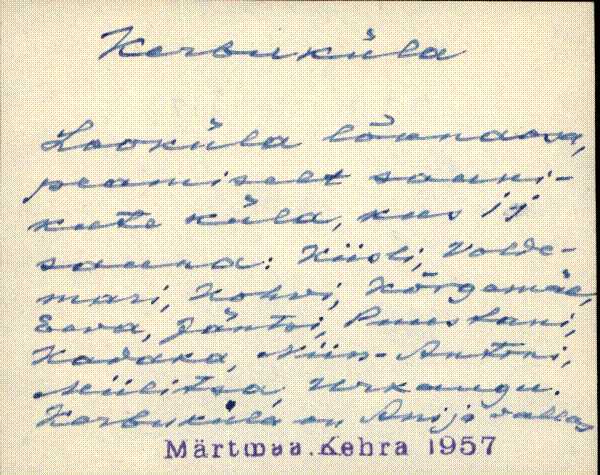 Kerbuküla
Looküla lõunaosa,
peamiselt sauni-
kute küla, kus
sauna: Kiisli, Volde-
mari, Kohvi, Kõrgemäe,
Eeva, Jäntsi, Puustani,
Kadaka, Niin-Antoni,
Miilitsa, Urkaugu.
Kerbuküla on Anija vallas
Märtmaa. Kehra 1957